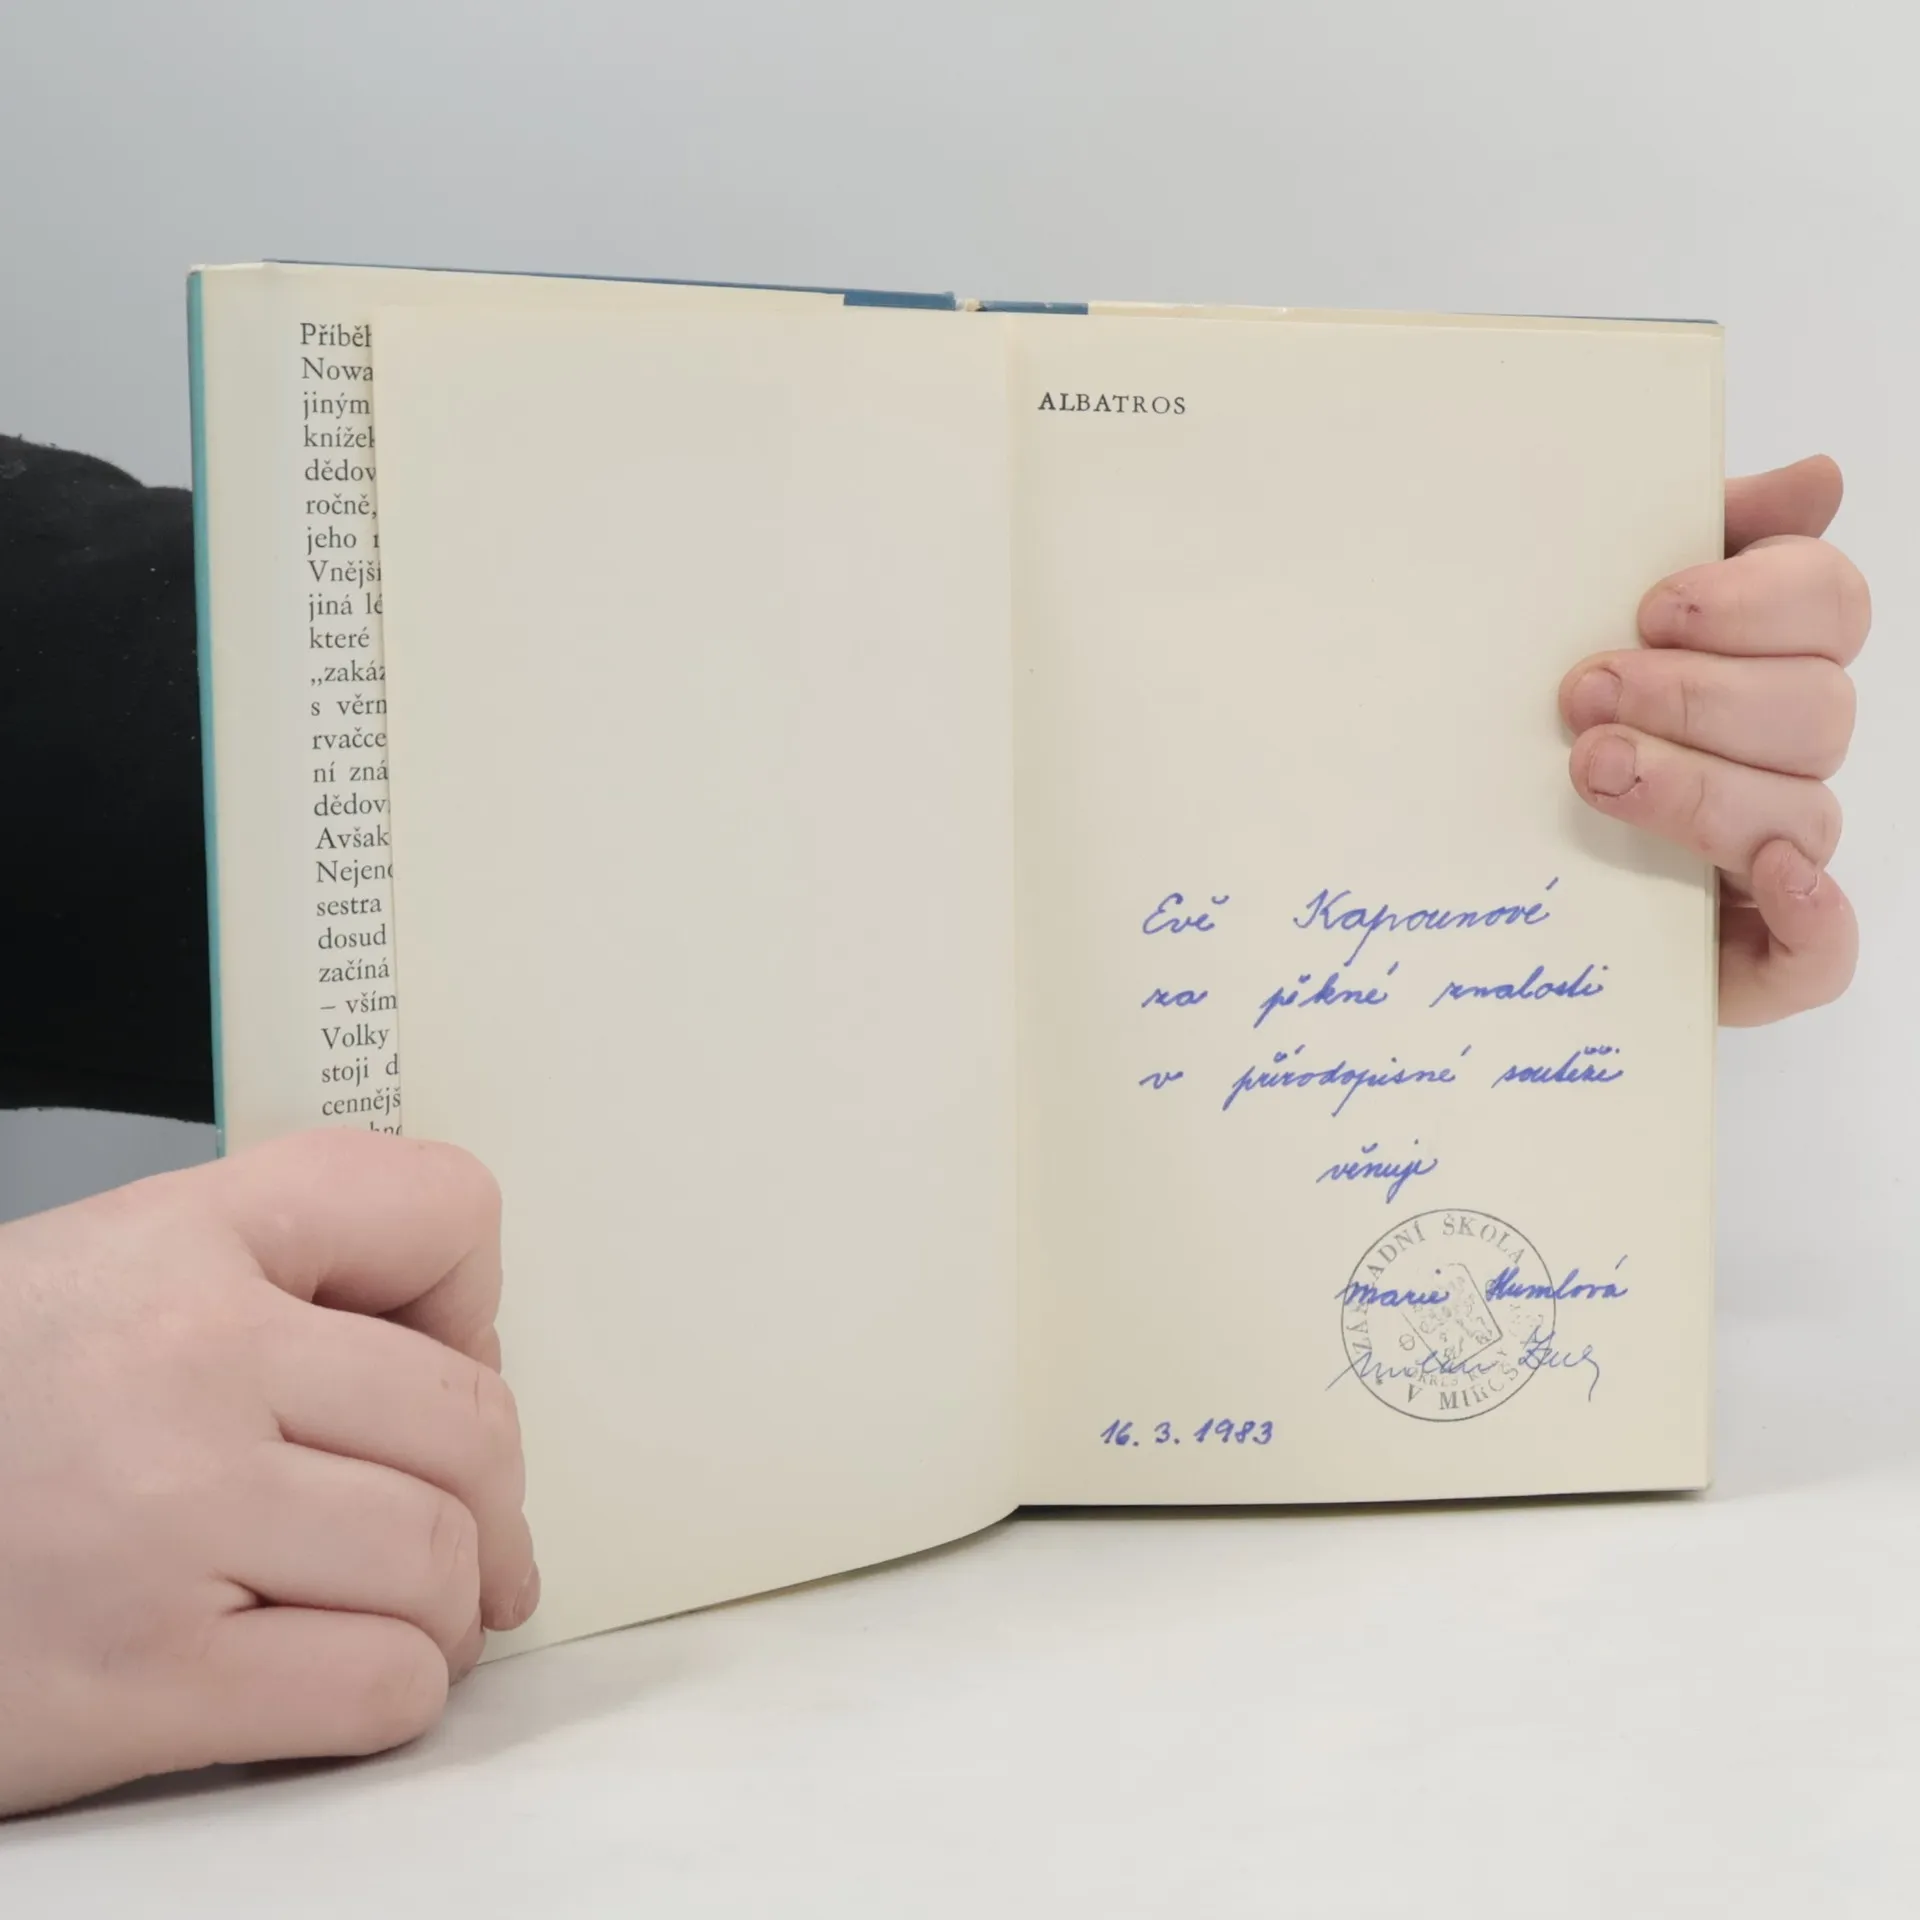 Příběh
Nowa
jiným
knížek
dědov
ročně,
jeho
Vnější
jiná lé
které
„zakáz
s věrn
rvačce
ní zná
dědov
Avšak
Nejeno
sestra
dosud
začíná
– vším
Volky
stojí d
cennějš
ALBATROS
Evě Kapounové
za pěkné znalosti
v přírodopisné soutěži
věnuje
ZÁKLADNÍ ŠKOLA
Marie Humlová
V
16. 3. 1983